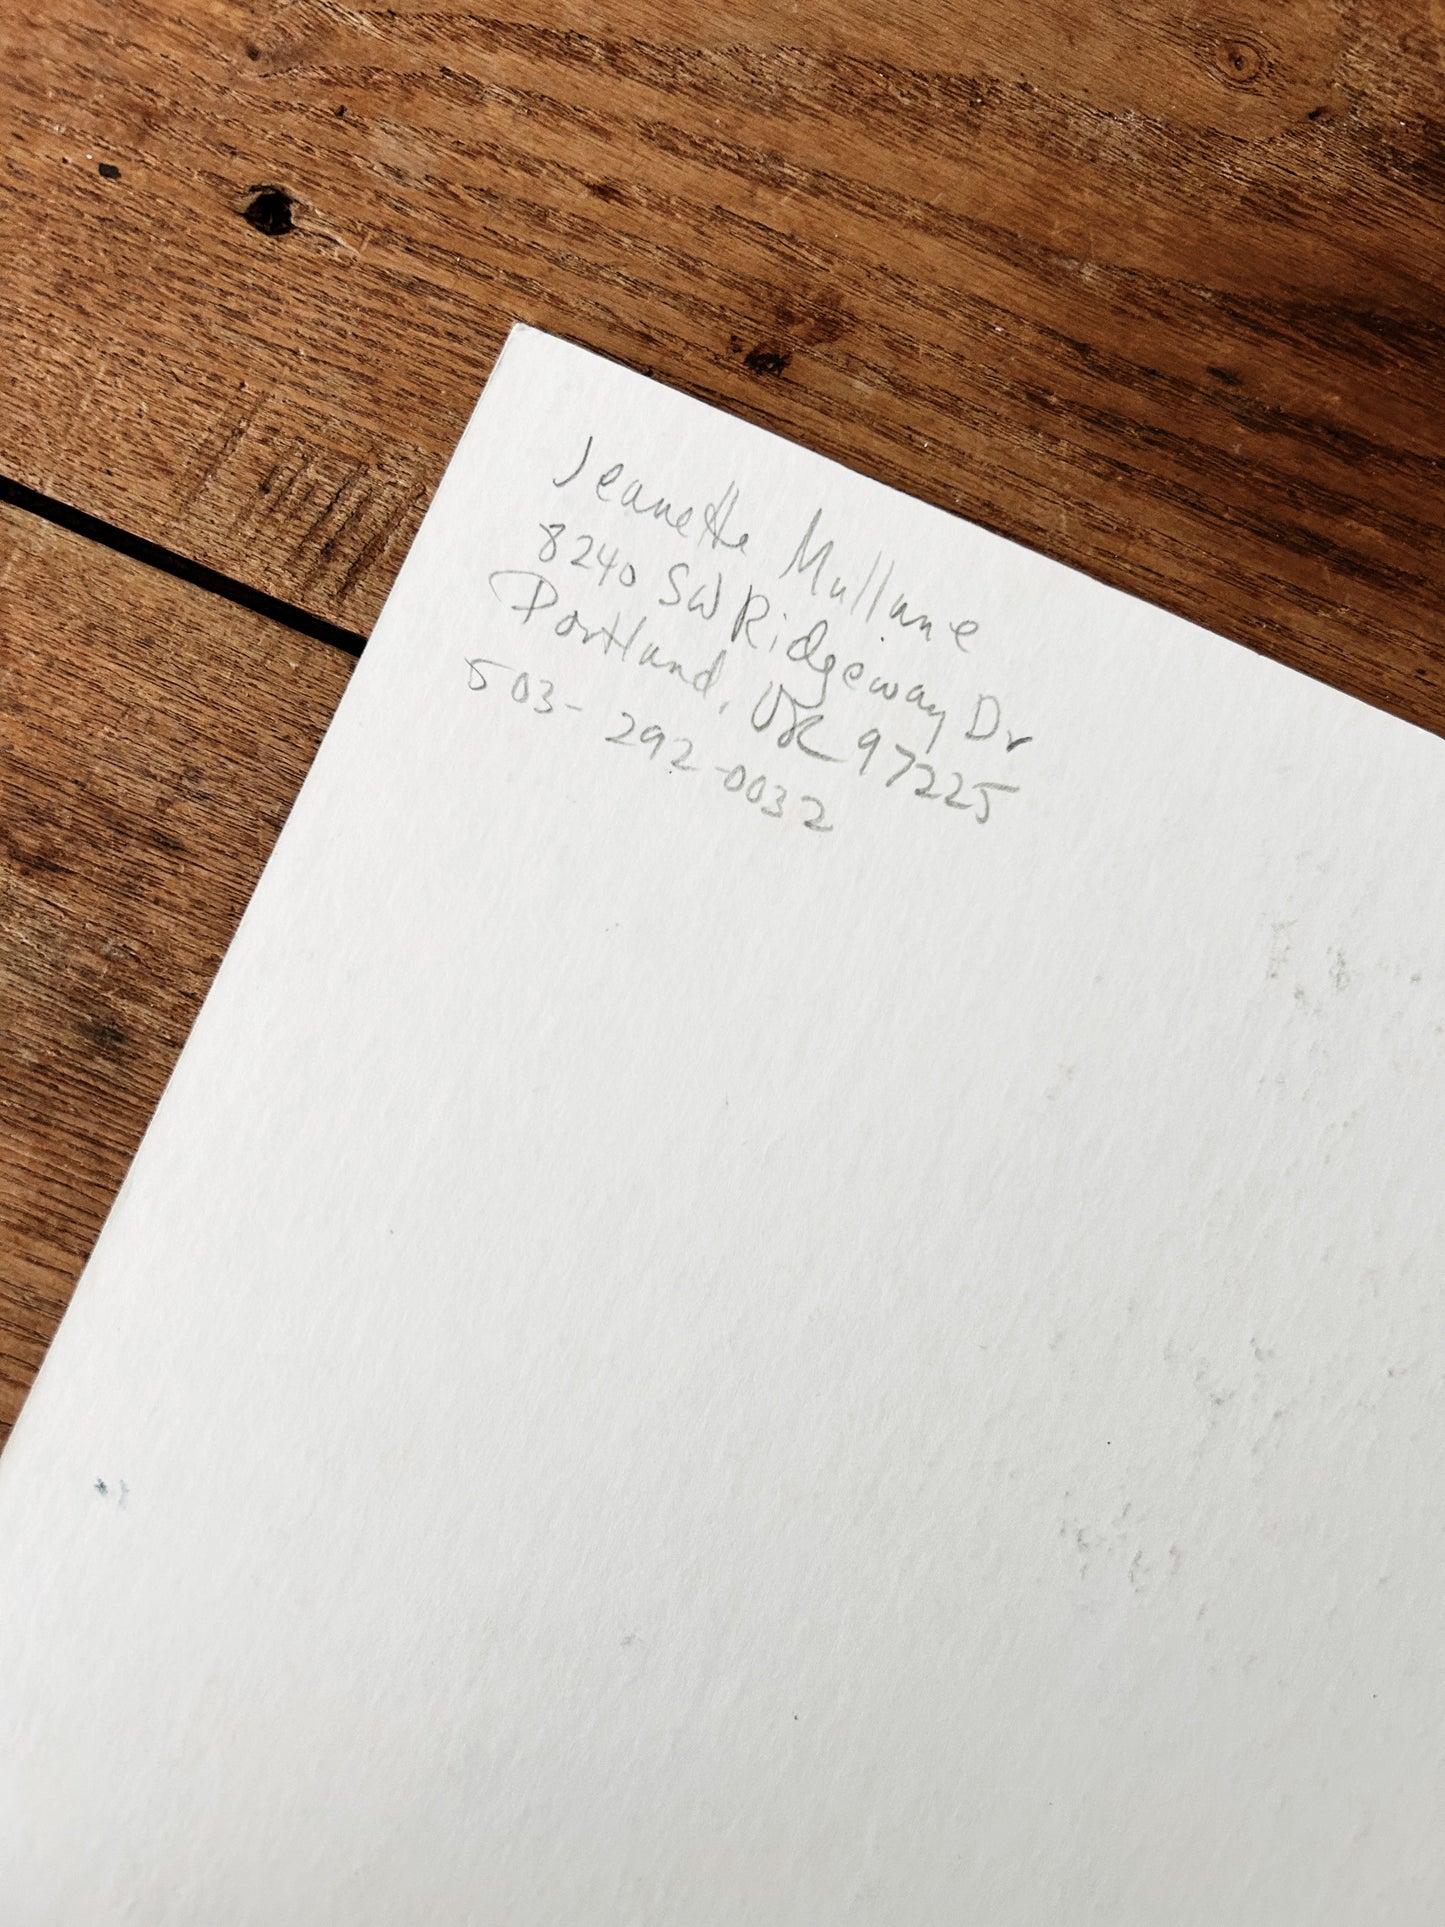 Jeanette Mullane
8240 SW Ridgeway Dr
Portland, OR 97225
503-292-0032